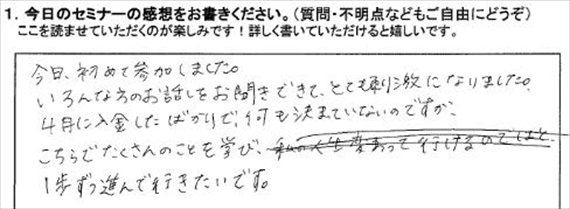 1. 今日のセミナーの感想をお書きください。(質問・不明点などもご自由にどうぞ)
ここを読ませていただくのが楽しみです！詳しく書いていただけると嬉しいです。
今日、初めて参加しました。
いろんな方のお話しをお聞きできて、とても刺激になりました。
4月に入金したばかりで、何も決まていないのですが、
こちらでたくさんのことを学び、私の人生変わって行けるのではと
1歩ずつ進んで行きたいです。